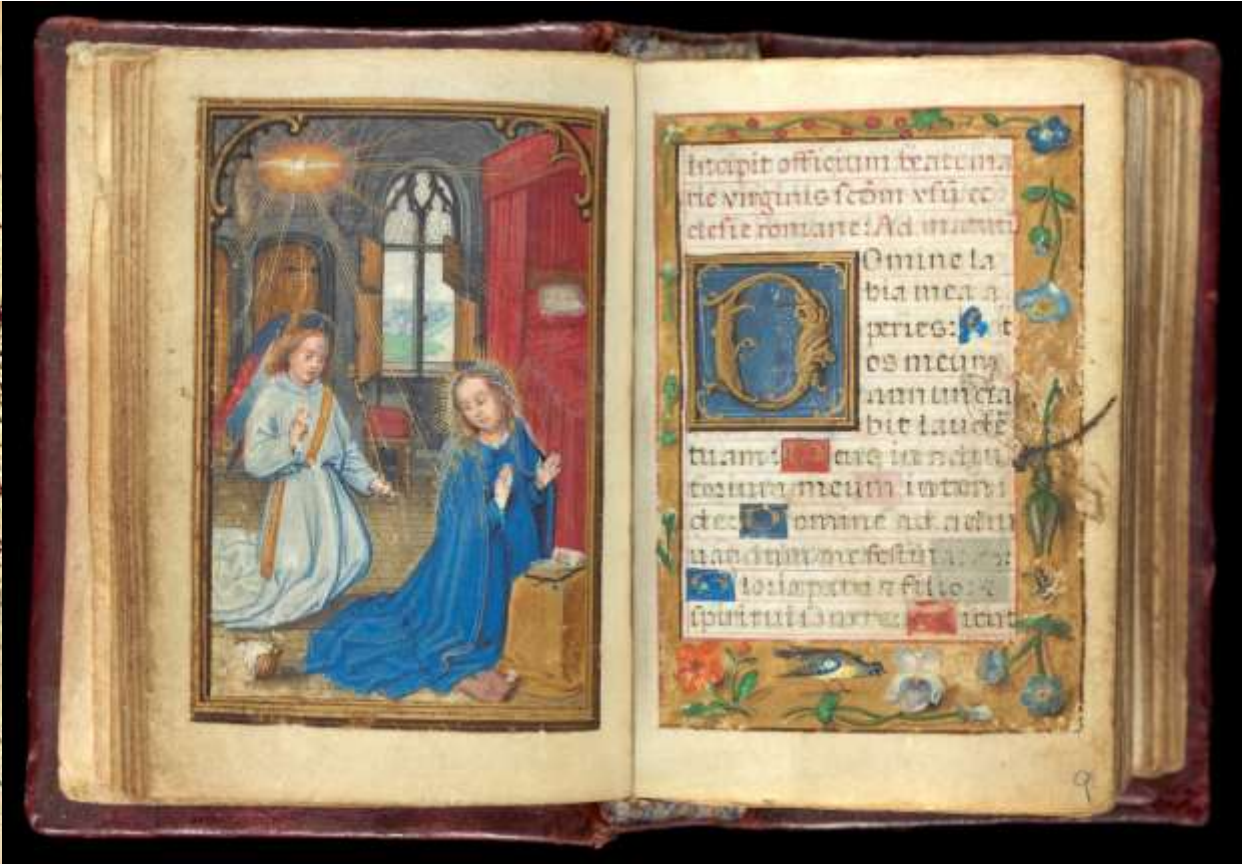 Incipit officium beate ma
rie virginis scdm usū ec
clesie romane: Ad matuti
Domine la
bia mea a
peries: Et
os meum
annuncia
bit laudē
tuam: Deus in adiu
torium meum inten
de: Domine ad adiu
uandum me festina:
Gloria patri ⁊ filio: ⁊
spiritui sancto: Sicut
9